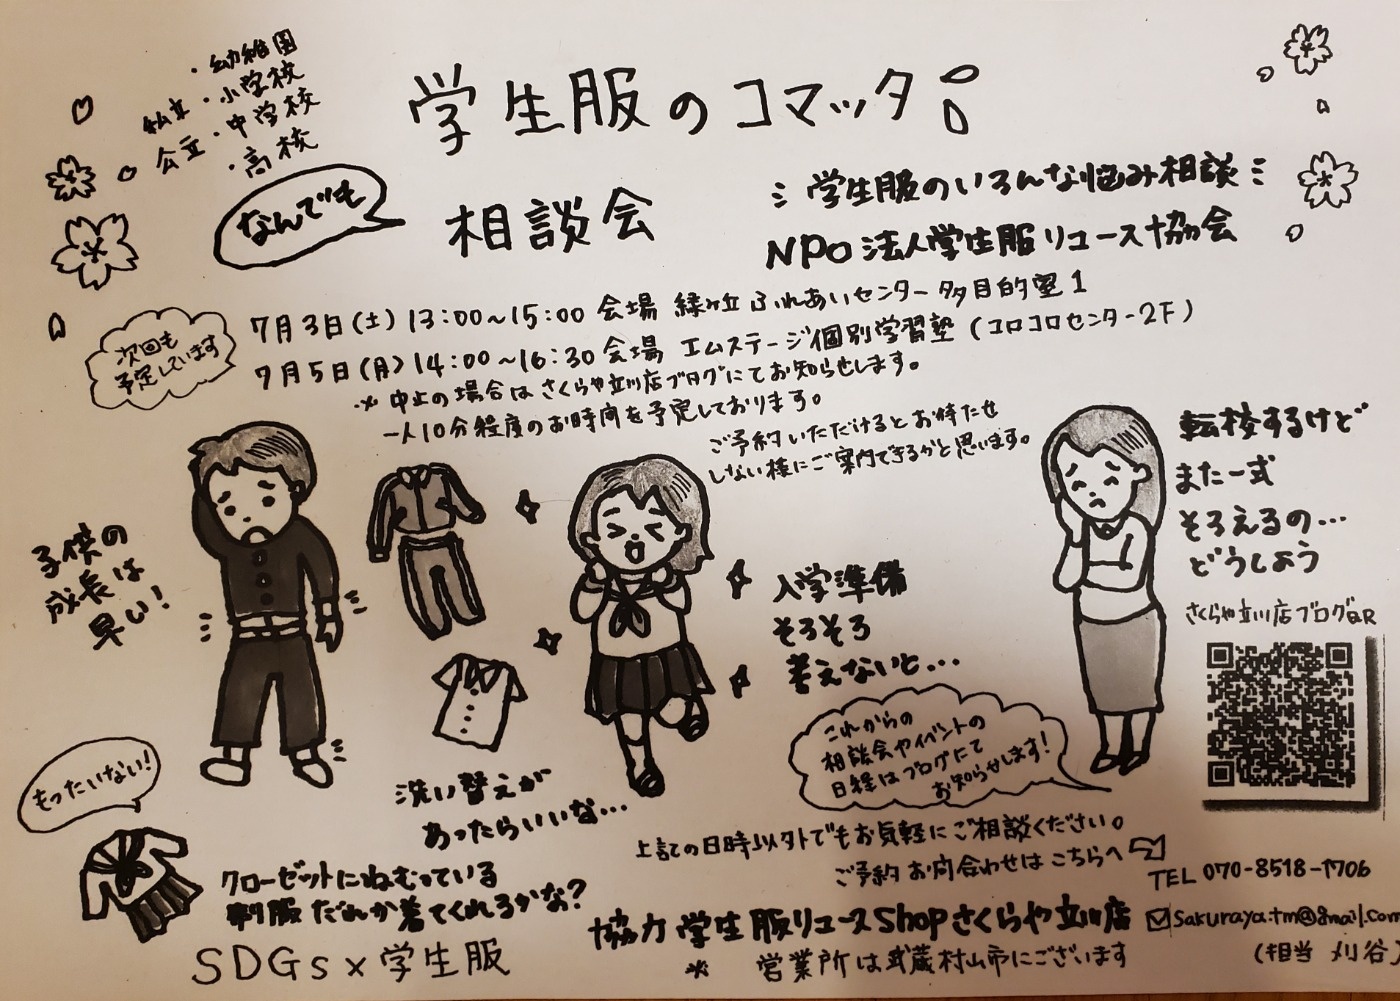 ・幼稚園
私立・小学校
公立・中学校
・高校
学生服のコマッタ!
なんでも
相談会
学生服のいろんな悩み相談
NPO法人学生服リユース協会
次回も
予定しています
7月3日(土) 13:00~15:00 会場 緑ヶ丘ふれあいセンター多目的室1
7月5日(月) 14:00~16:30 会場 エムステージ個別学習塾 (コロコロセンター2F)
※ 中止の場合はさくらや立川店ブログにてお知らせします。
一人10分程度のお時間を予定しております。
ご予約いただけるとお待たせ
しない様にご案内できるかと思います。
子供の
成長は
早い!
入学準備
そろそろ
考えないと…
転校するけど
また一式
そろえるの…
どうしよう
さくらや立川店ブログQR
これからの
相談会やイベントの
日程はブログにて
お知らせします!
もったいない!
洗い替えが
あったらいいな…
クローゼットにねむっている
制服だれか着てくれるかな?
SDGs×学生服
上記の日時以外でもお気軽にご相談ください。
ご予約お問合わせはこちらへ
TEL 070-8518-1706
協力 学生服リユースShopさくらや立川店
sakuraya.tm@gmail.com
※ 営業所は武蔵村山市にございます
(担当 刈谷)